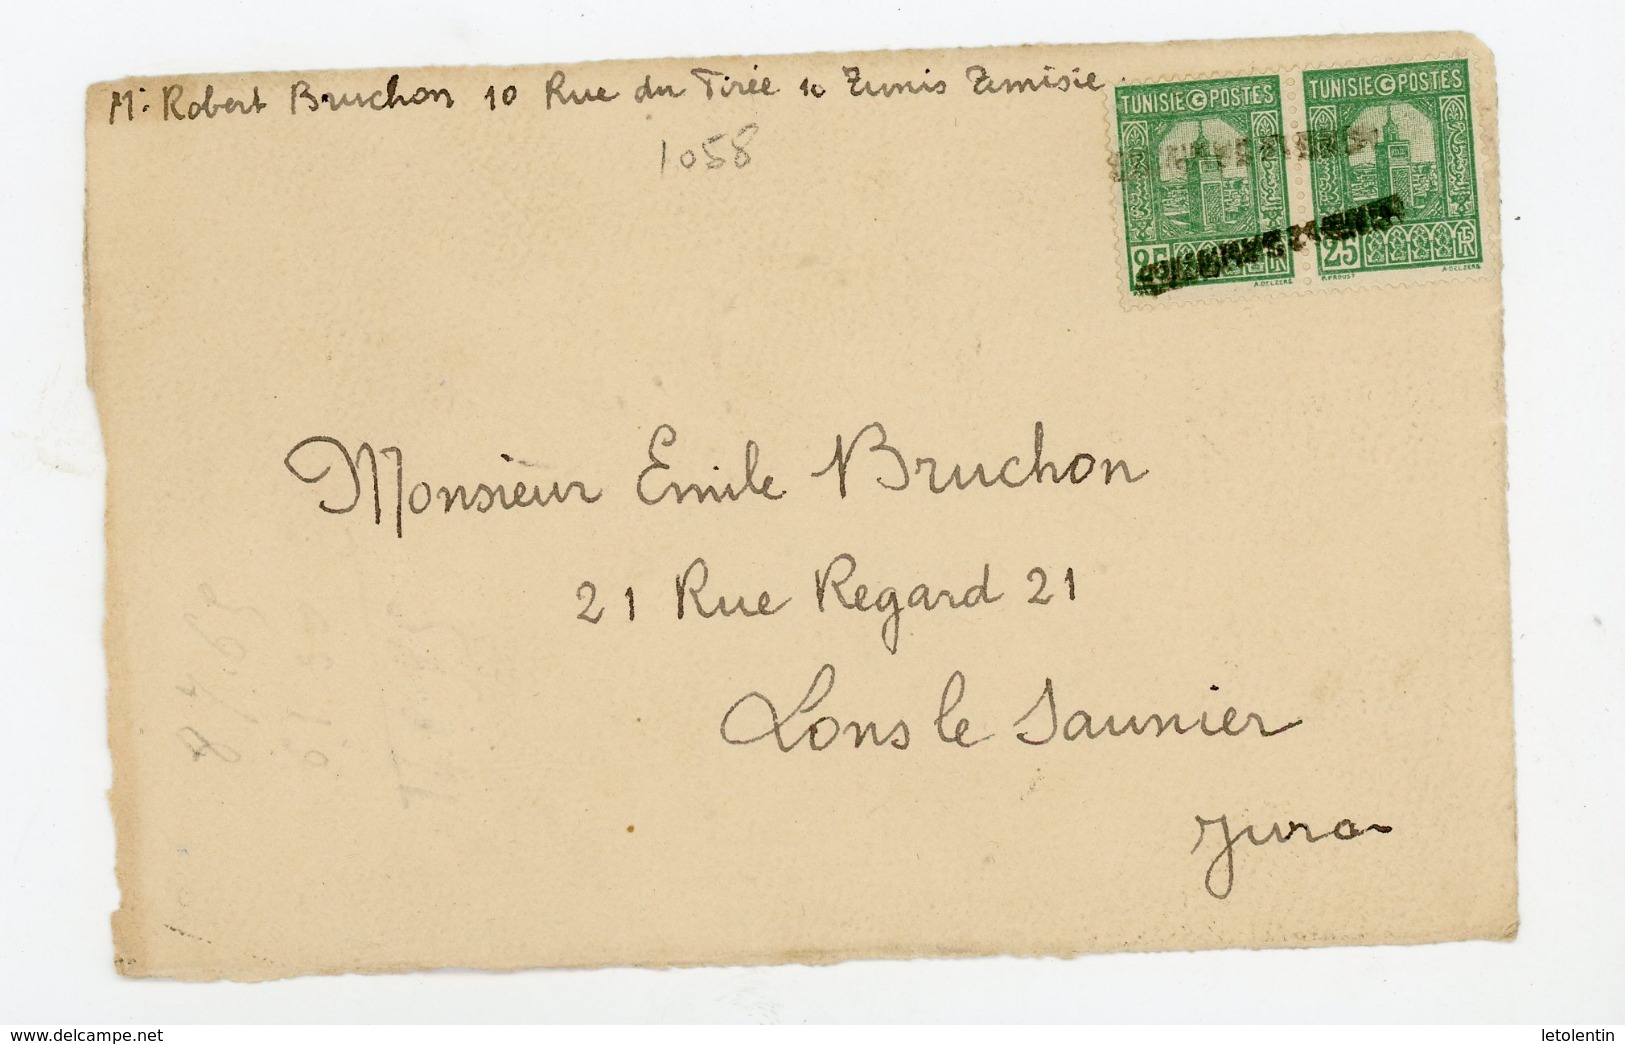 Mr Robert Bruchon 10 Rue du Tirée 10 Tunis Tunisie
1058
TUNISIE POSTES
25
P. PROUST A. DELZERS
TUNISIE POSTES
25
P. PROUST A. DELZERS
Monsieur Emile Bruchon
21 Rue Regard 21
Lons le Saunier
Jura
www.delcampe.net
letolentin